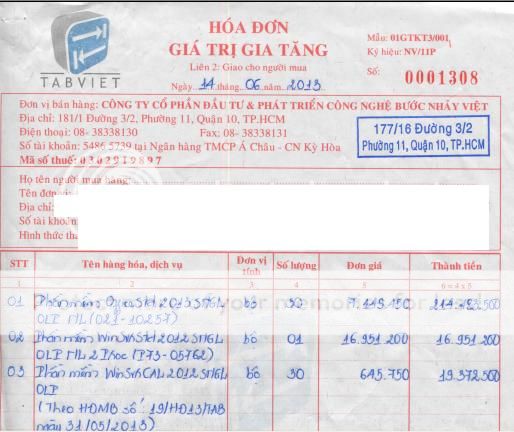 TABVIET
HÓA ĐƠN
GIÁ TRỊ GIA TĂNG
Liên 2: Giao cho người mua
Ngày 14 tháng 06 năm 2013
Mẫu: 01GTKT3/001
Ký hiệu: NV/11P
Số: 0001308
Đơn vị bán hàng: CÔNG TY CỔ PHẦN ĐẦU TƯ & PHÁT TRIỂN CÔNG NGHỆ BƯỚC NHẢY VIỆT
Địa chỉ: 181/1 Đường 3/2, Phường 11, Quận 10, TP.HCM
Điện thoại: 08- 38338130 Fax: 08- 38338131
Số tài khoản: 5486 5739 tại Ngân hàng TMCP Á Châu - CN Kỳ Hòa
Mã số thuế: 0302919897
177/16 Đường 3/2
Phường 11, Quận 10, TP.HCM
Họ tên người mua hàng:
Tên đơn vị
Địa chỉ:
Số tài khoản
Hình thức
STT Tên hàng hóa, dịch vụ Đơn vị tính Số lượng Đơn giá Thành tiền
1 2 3 4 5 6 = 4 x 5
01 Phần mềm OfficeStd 2013 SNGL bộ 30 7.149.450
OLP NL (021-10257)
02 Phần mềm WinSvrStd 2012 SNGL bộ 01 16.951.200 16.951.200
OLP NL 2Proc (P73-05762)
03 Phần mềm WinSvrCAL 2012 SNGL bộ 30 645.750 19.372.500
OLP
(Theo HĐMB số: 19/HĐ13/TAB
ngày 31/05/2013)